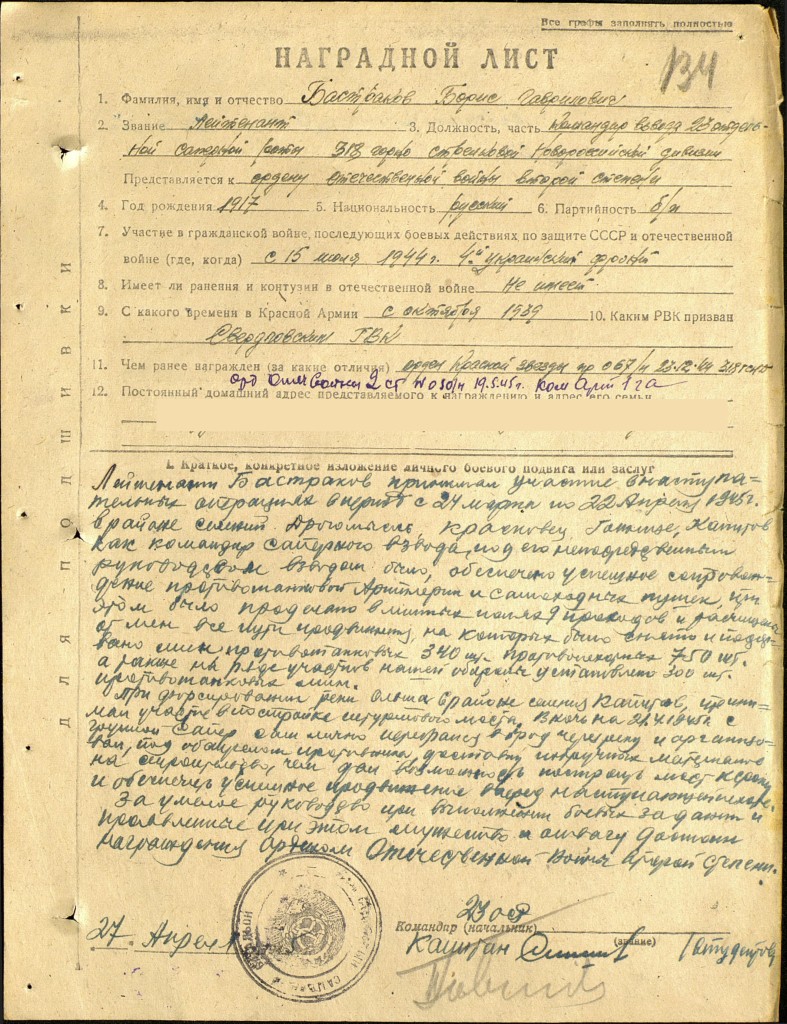 Все графы заполнять полностью
НАГРАДНОЙ ЛИСТ
134
1. Фамилия, имя и отчество Бастраков Борис Гаврилович
2. Звание Лейтенант 3. Должность, часть Командир взвода 23 отдель-
ной саперной роты 318 горно стрелковой Новороссийской дивизии
Представляется к ордену Отечественной войны второй степени
4. Год рождения 1917 5. Национальность русский 6. Партийность б/п
7. Участие в гражданской войне, последующих боевых действиях по защите СССР и отечественной
войне (где, когда) с 15 июля 1944 г. 4й Украинский фронт
8. Имеет ли ранения и контузии в отечественной войне Не имеет
9. С какого времени в Красной Армии с октября 1939 10. Каким РВК призван
Свердловским ГВК
11. Чем ранее награжден (за какие отличия) орден Красной звезды пр 067/н 23.12.44
орд Отеч Войны 2 ст № 030/н 19.5.45г. Ком Арт 1 га
12. Постоянный домашний адрес представляемого к награждению и адрес его семьи
ДЛЯ ПОДШИВКИ
I. Краткое, конкретное изложение личного боевого подвига или заслуг
Лейтенант Бастраков принимал участие в наступа-
тельных операциях в период с 24 марта по 22 Апреля 1945г.
в районе селений Дрогомысль, Красновец,
как командир саперного взвода, под его непосредственным
руководством взводом было, обеспечено успешное сопровож-
дение противотанковой Артиллерии и самоходных пушек, при
этом было проделано в минных полях 9 проходов и
от мин все пути продвижения, на которых было снято и подор-
вано мин противотанковых 340 шт. противопехотных 750 шт.
а также на ряде участков нашей обороны установлено 300 шт.
противотанковых мин.
При форсировании реки Ольша в районе селения прини-
мал участие в постройке штурмового моста. В ночь на 21.4.1945г. с
группой Сапер сам лично перебрался в брод через реку и организо-
вал, под обстрелом противника, доставку подручных материалов
на строительство, чем дал возможность построить мост к сроку
и обеспечить успешное продвижение вперед наступающей пехоте.
За умелое руководство при выполнении боевых задач и
проявленные при этом мужество и отвагу достоин
награждения Орденом Отечественной Войны Второй степени.
27. Апреля
Командир (начальник) 23 оср
Капитан
(звание)